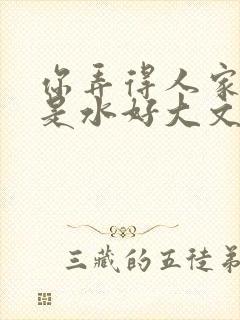 你弄得人家
是水好大文
三藏的五徒弟